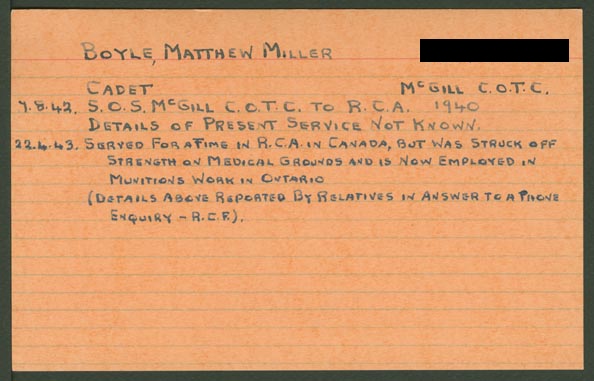 BOYLE, MATTHEW MILLER
CADET McGILL C.O.T.C.
7.8.42. S.O.S. McGILL C.O.T.C. TO R.C.A. 1940
DETAILS OF PRESENT SERVICE NOT KNOWN.
22.4.43. SERVED FOR A TIME IN R.C.A. IN CANADA, BUT WAS STRUCK OFF
STRENGTH ON MEDICAL GROUNDS AND IS NOW EMPLOYED IN
MUNITIONS WORK IN ONTARIO
(DETAILS ABOVE REPORTED BY RELATIVES IN ANSWER TO A PHONE
ENQUIRY - R.C.F.).